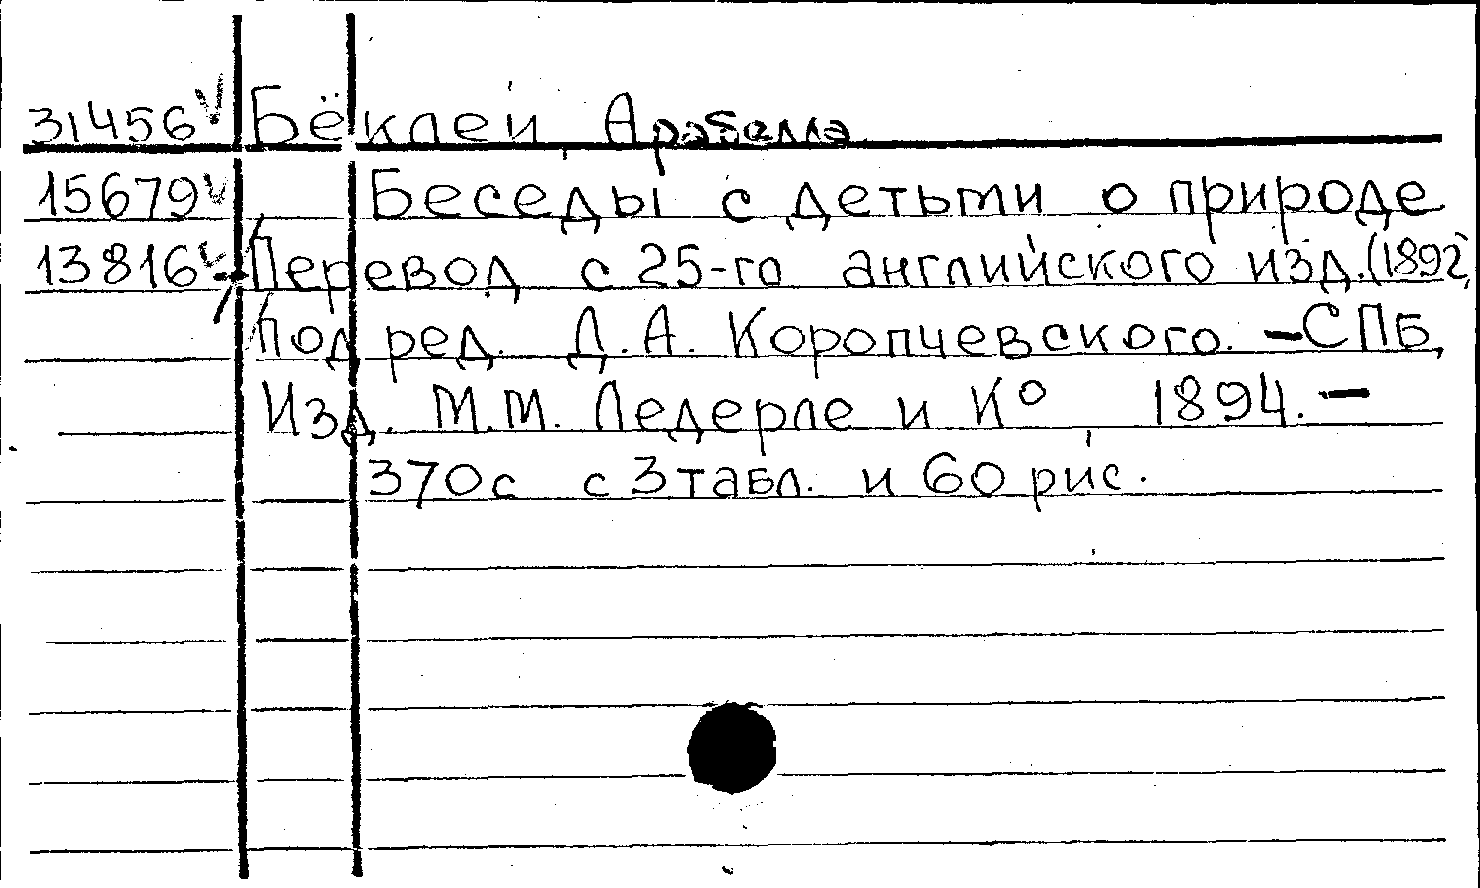 31456 Бёклей, Арабелла
15679 Беседы с детьми о природе
13816 Перевод с 25-го английского изд. (1892,
Под ред. Д.А. Коропчевского. – СПБ,
Изд. М.М. Ледерле и К° , 1894. –
370с с 3 табл. и 60 рис.